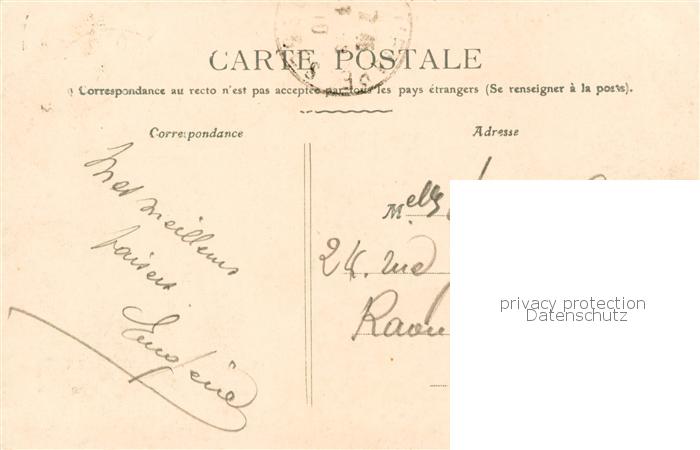 CARTE POSTALE
Correspondance au recto n'est pas acceptée par tous les pays étrangers (Se renseigner à la poste).
Correspondance
Mes meilleurs
baisers
Eugénie
Adresse
Melle
24. rue
Raon
privacy protection
Datenschutz